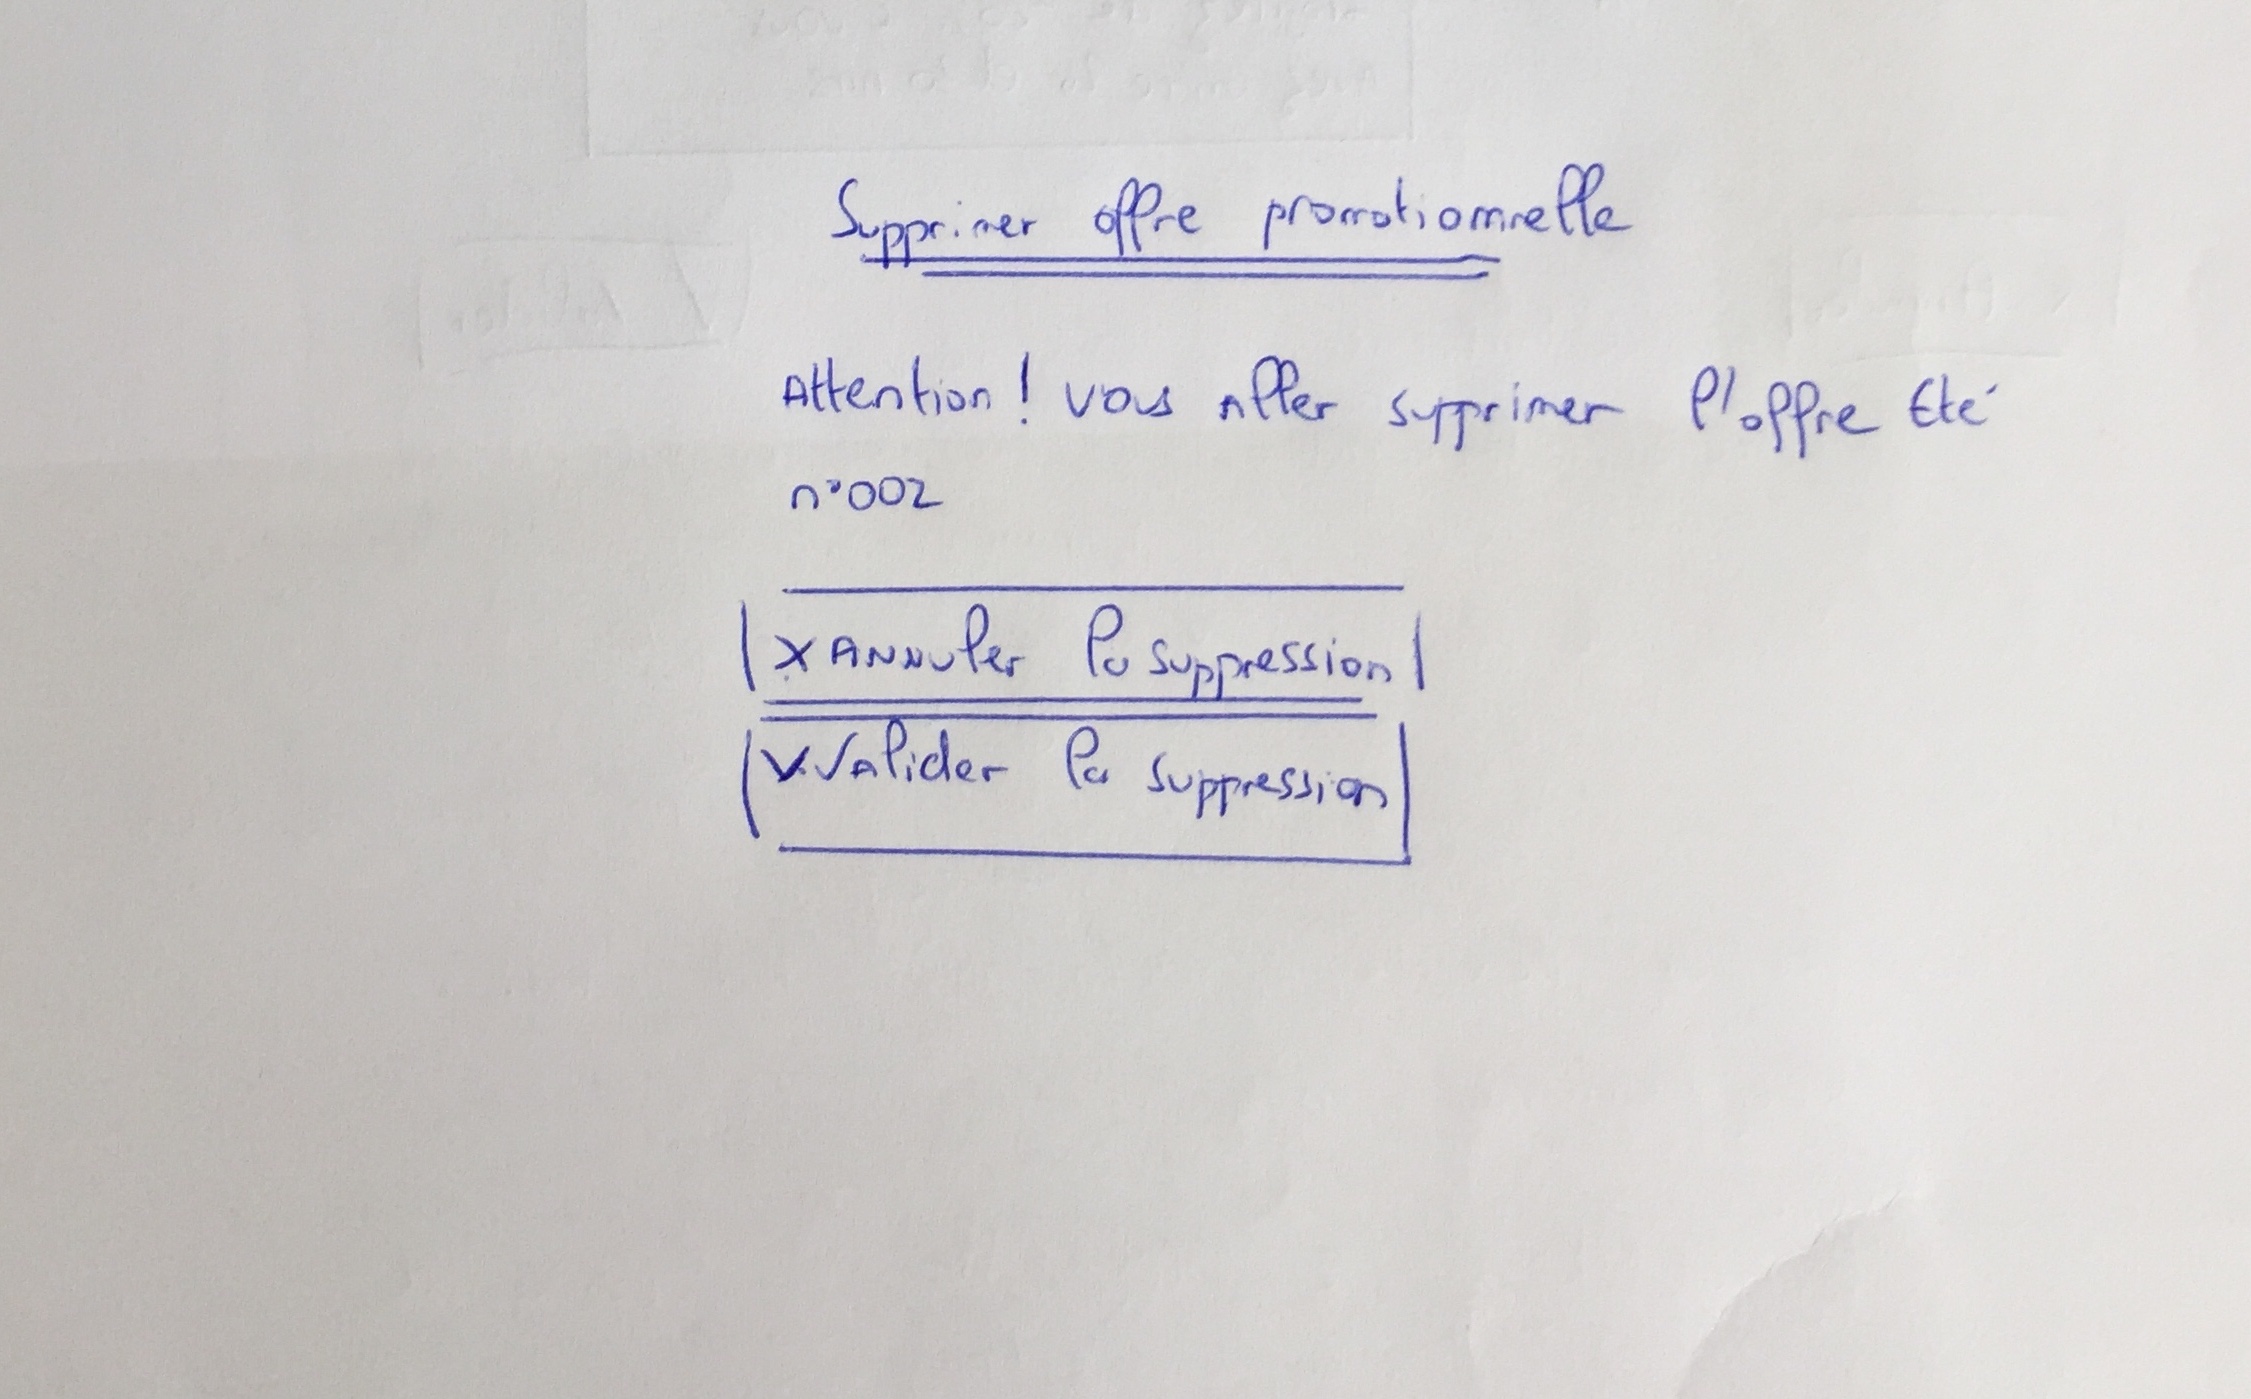 Supprimer offre promotionnelle
Attention ! vous aller supprimer l'offre Eté
n°002
X Annuler la suppression
✓ Valider la suppression